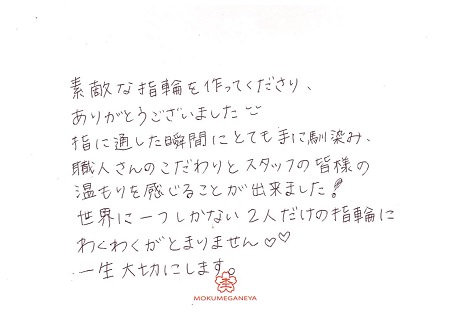 素敵な指輪を作ってくださり、
ありがとうございました
指に通した瞬間にとても手に馴染み、
職人さんのこだわりとスタッフの皆様の
温もりを感じることが出来ました!
世界に一つしかない2人だけの指輪に
わくわくがとまりません♡♡
一生大切にします。
MOKUMEGANEYA